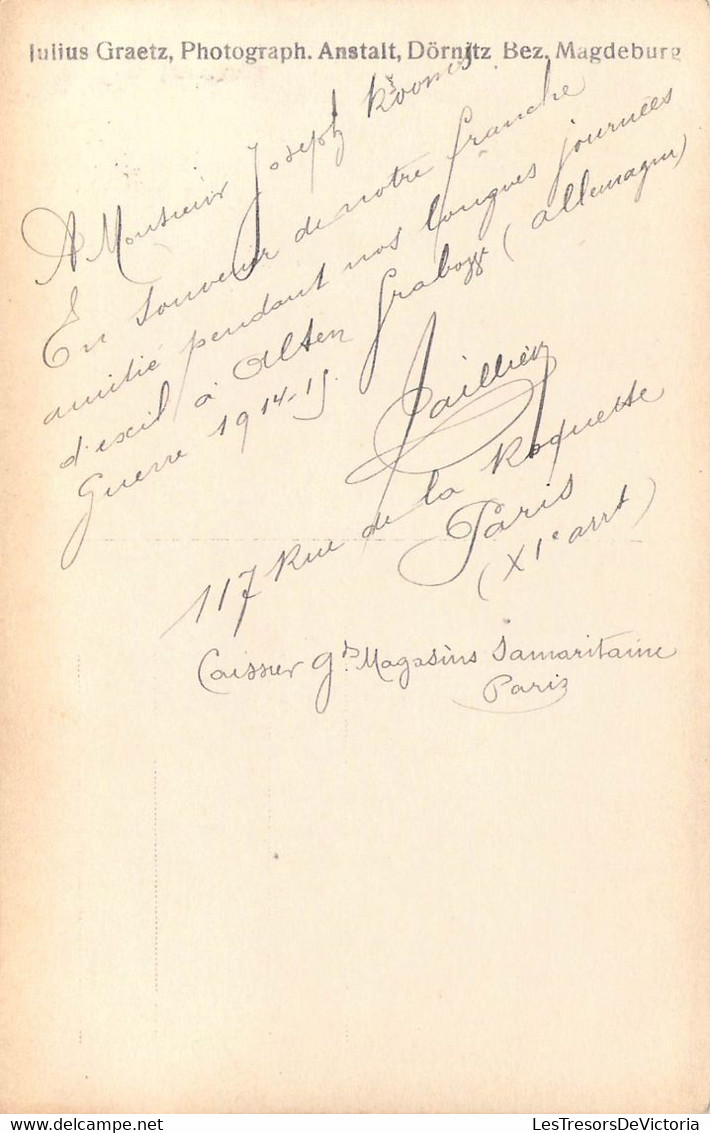 Julius Graetz, Photograph. Anstalt, Dörnitz Bez. Magdeburg
A Monsieur Joseph
En souvenir de notre franche
amitié pendant nos longues journées
d'exil à Alten Grabow (Allemagne)
Guerre 1914-15.
117 Rue de la Roquette
Paris
(XIe arrt)
Caissier Gds Magasins Samaritaine
Paris
Delcampe.net
LesTresorsDeVictoria